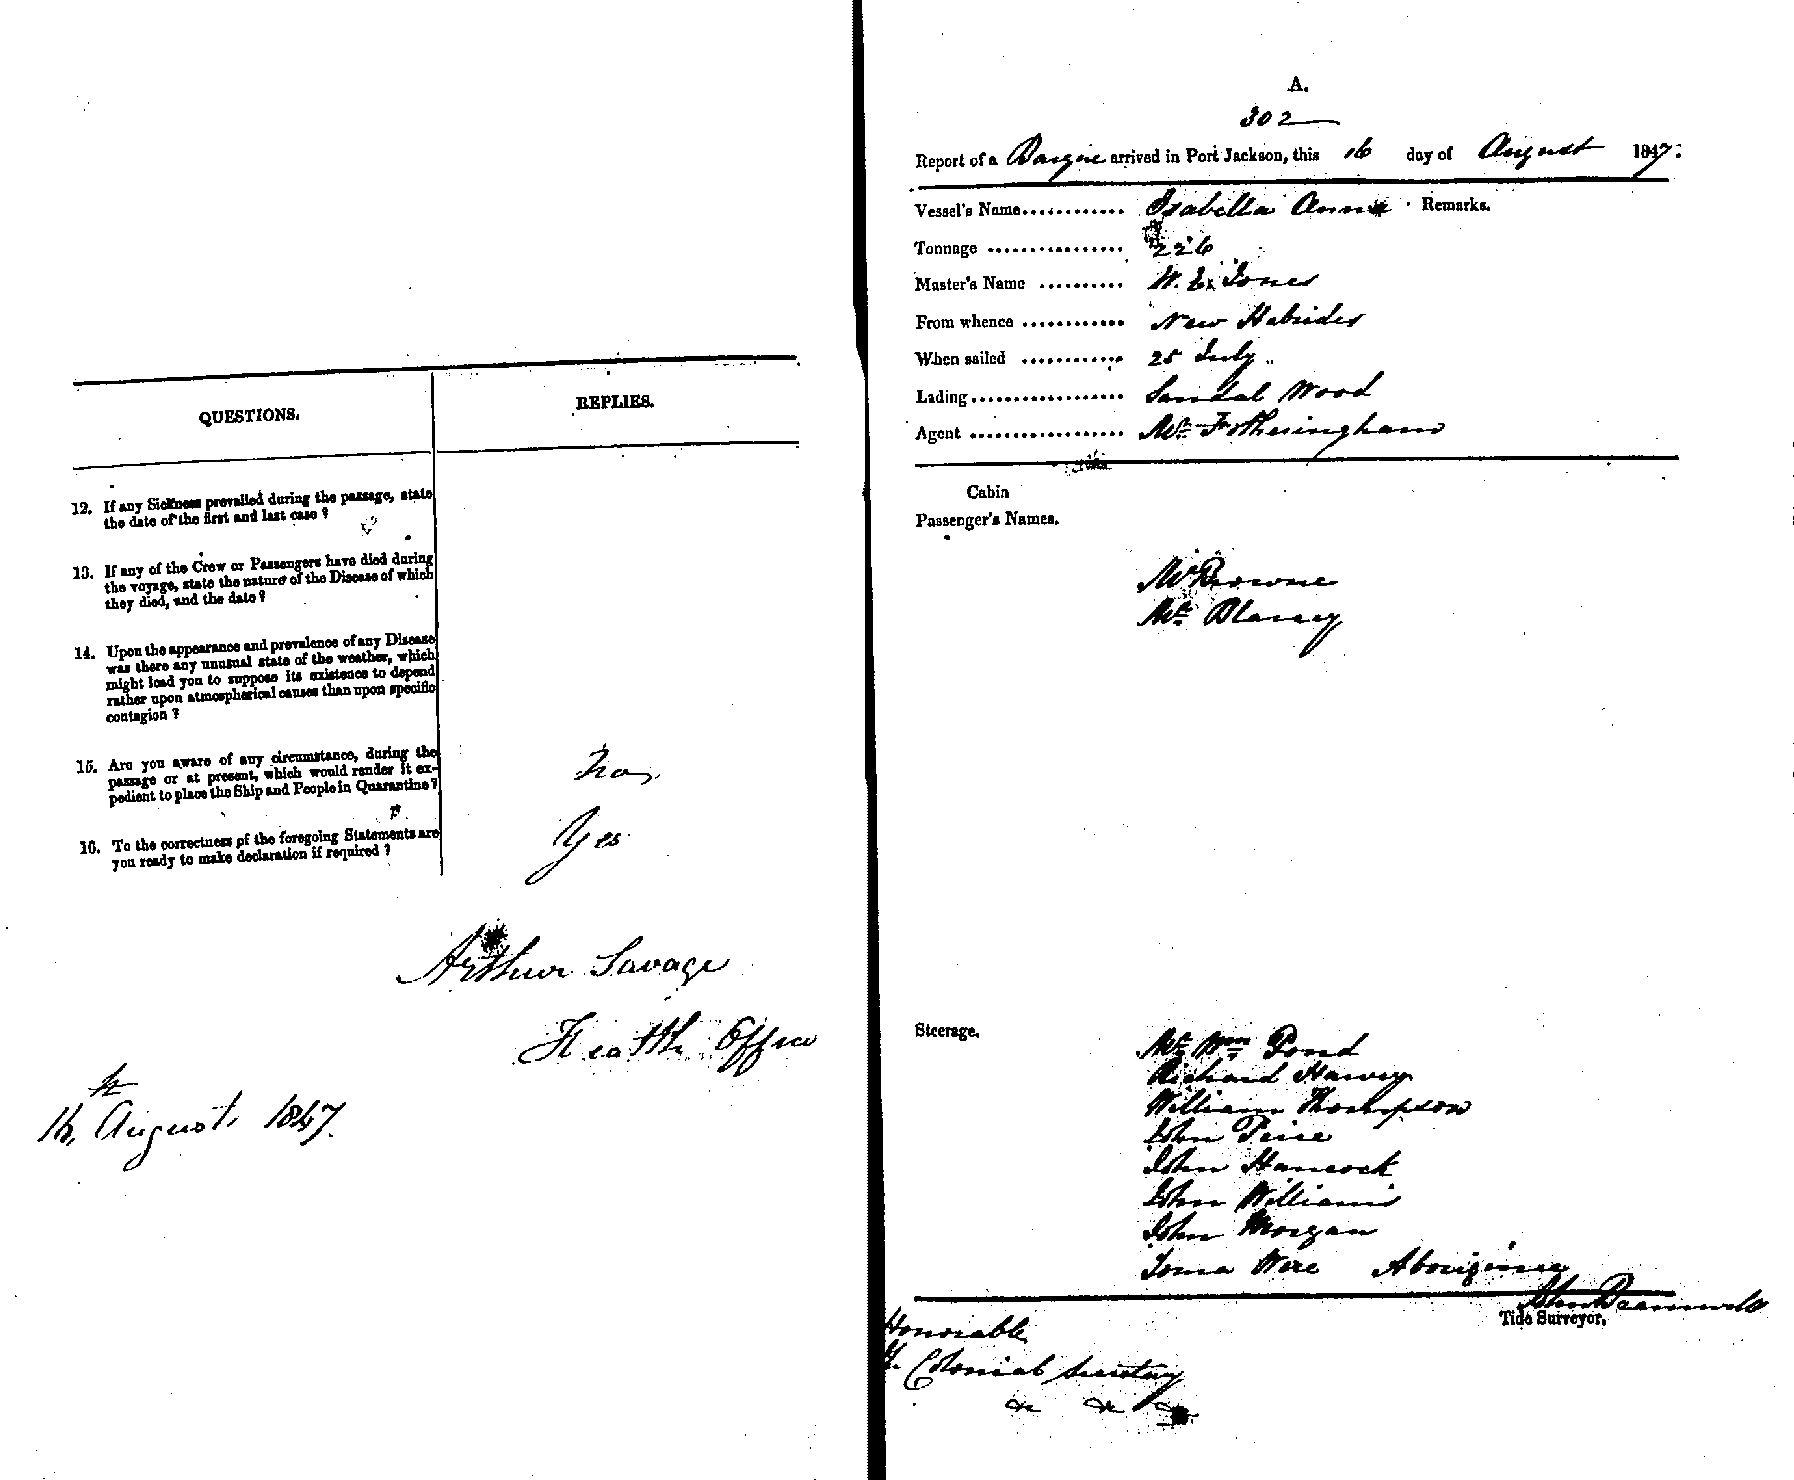 QUESTIONS.
REPLIES.
12. If any Sickness prevailed during the passage, state
the date of the first and last case ?
13. If any of the Crew or Passengers have died during
the voyage, state the nature of the Disease of which
they died, and the date ?
14. Upon the appearance and prevalence of any Disease
was there any unusual state of the weather, which
might lead you to suppose its existence to depend
rather upon atmospherical causes than upon specific
contagion ?
15. Are you aware of any circumstance, during the
passage or at present, which would render it ex-
pedient to place the Ship and People in Quarantine ?
No,
16. To the correctness of the foregoing Statements are
you ready to make declaration if required ?
Yes
Arthur Savage
Health Officer
16, August, 1847.
A.
302
Report of a Barque arrived in Port Jackson, this 16 day of August 1847.
Vessel's Name............ Isabella Anna Remarks.
Tonnage ................ 226
Master's Name .......... W. E. Jones
From whence ............ New Hebrides
When sailed ............ 25 July
Lading.................. Sandal Wood
Agent ................... Mr. Fotheringham
Cabin
Passenger's Names.
Mr Browne
Mr.
Steerage.
Mr. Wm Pond
Richard Harvey
William Thompson
John
John Hancock
John Williams
John Morgan
Toma Were Aborigines
John
Tide Surveyor.
Honorable
Colonial Secretary